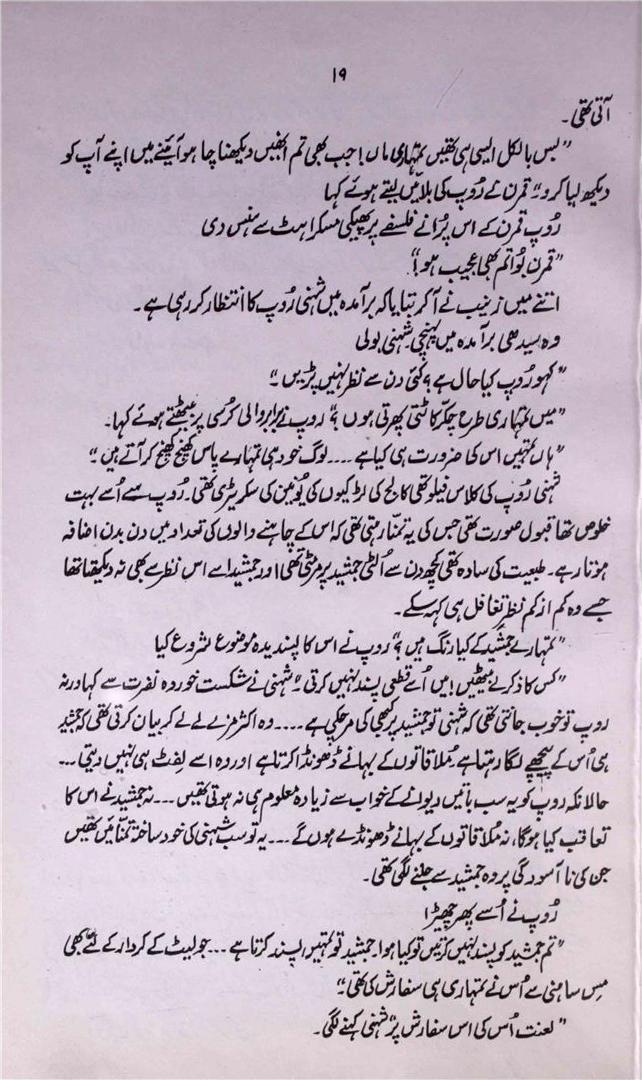 ۱۹
آتی تھی۔
"بس بالکل ایسی ہی تھیں تمہاری ماں! جب بھی تم انھیں دیکھنا چاہو آئینے میں اپنے آپ کو
دیکھ لیا کرو" قمرن نے رُوپ کی بلائیں لیتے ہوئے کہا
رُوپ قمرن کے اس پرانے فلسفے پر پھیکی مسکراہٹ سے ہنس دی
"قمرن بُوا تم بھی عجیب ہو!"
اتنے میں زینب نے آکر بتایا کہ برآمدہ میں شہنی رُوپ کا انتظار کر رہی ہے۔
وہ سیدھی برآمدہ میں پہنچی شہنی بولی
"کہو رُوپ کیا حال ہے؟ کئی دن سے نظر نہیں پڑیں۔"
"میں تمہاری طرح چکر کاٹتی پھرتی ہوں؟" روپ نے برابر والی کرسی پر بیٹھتے ہوئے کہا۔
"ہاں تمہیں اس کی ضرورت ہی کیا ہے .... لوگ خود ہی تمہارے پاس کھنچ کھنچ کر آتے ہیں۔"
شہنی رُوپ کی کلاس فیلو تھی کالج کی لڑکیوں کی یونین کی سکریٹری تھی۔ رُوپ سے اُسے بہت
خلوص تھا قبول صورت تھی جس کی یہ تمنا رہتی تھی کہ اس کے چاہنے والوں کی تعداد میں دن بدن اضافہ
ہوتا رہے۔ طبیعت کی سادہ تھی کچھ دن سے اُلٹی جمشید پر مرمٹی تھی اور جمشید اسے اس نظر سے بھی نہ دیکھتا تھا
جسے وہ کم از کم نظرِ تغافل ہی کہہ سکے۔
"تمہارے جمشید کے کیا رنگ ہیں؟" روپ نے اس کا پسندیدہ موضوع شروع کیا
"کس کا ذکر لے بیٹھیں! میں اُسے قطعی پسند نہیں کرتی۔" شہنی نے شکست خوردہ نفرت سے کہا ورنہ
روپ تو خوب جانتی تھی کہ شہنی تو جمشید پر کبھی کی مرچکی ہے .... وہ اکثر مزے لے لے کر بیان کرتی تھی کہ جمشید
ہی اُس کے پیچھے لگا رہتا ہے۔ مُلاقاتوں کے بہانے ڈھونڈا کرتا ہے اور وہ اسے لفٹ ہی نہیں دیتی ...
حالانکہ روپ کو یہ سب باتیں دیوانے کے خواب سے زیادہ معلوم ہی نہ ہوتی تھیں ... نہ جمشید نے اس کا
تعاقب کیا ہوگا، نہ مُلاقاتوں کے بہانے ڈھونڈے ہوں گے ... یہ تو سب شہنی کی خود ساختہ تمنائیں تھیں
جن کی نا آسودگی پر وہ جمشید سے جلنے لگی تھی۔
رُوپ نے اُسے پھر چھیڑا
"تم جمشید کو پسند نہیں کرتیں تو کیا ہوا۔ جمشید تو تمہیں پسند کرتا ہے ... جولیٹ کے کردار کے لئے بھی
مِس سامنی سے اُس نے تمہاری ہی سفارش کی تھی۔"
"لعنت اُس کی اس سفارش پر" شہنی کہنے لگی۔